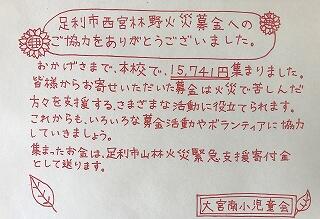 足利市西宮林野火災募金への
ご協力をありがとうございました。
おかげさまで、本校で、15,741円集まりました。
皆様からお寄せいただいた募金は火災で苦しんだ
方々を支援する、さまざまな活動に役立てられます。
これからも、いろいろな募金活動やボランティアに協力
していきましょう。
集まったお金は、足利市山林火災緊急支援寄付金
として送ります。
大宮南小児童会